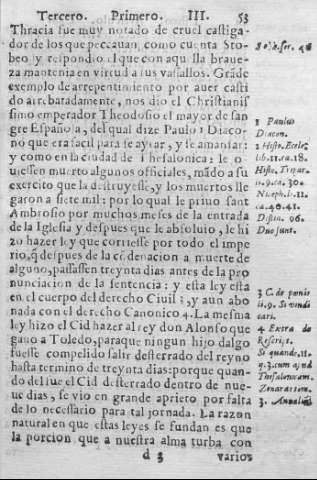 Tercero. Primero. III. 53
Thracia fue muy notado de cruel castiga-
dor de los que peccauan, como cuenta Sto-
beo y respondio el que con aqu lla braue-
za mantenia en virtud a sus vassallos. Grãde
exemplo de arrepentimiento por auer casti
do arrebatadamente, nos dio el Christianis
simo emperador Theodosio el mayor de san
gre Española, del qual dize Paulo 1 Diaco-
no que era facil para se ayrar, y se amansar:
y como en la ciudad de Thesalonica: le o
uiessen muerto algunos officiales, mãdo a su
exercito que la destruyesse, y los muertos lle
garon a siete mil: por lo qual le priuo sant
Ambrosio por muchos meses de la entrada
de la Iglesia y despues que le absoluio, le hi
zo hazer ley que corriesse por todo el impe
rio, q̃ despues de la cõdenacion a muerte de
alguno, passassen treynta dias antes de la pro
nunciacion de la sentencia: y esta ley esta
en el cuerpo del derecho Ciuil 3, y aun abo
nada con el derecho Canonico 4. La mesma
ley hizo el Cid hazer al rey don Alonso que
gano a Toledo, paraque ningun hijo dalgo
fuesse compelido salir desterrado del reyno
hasta termino de treynta dias: porque quan-
do del fue el Cid desterrado dentro de nue-
ue dias, se vio en grande aprieto por falta
de lo necessario para tal jornada. La razon
natural en que estas leyes se fundan es que
la porcion que a nuestra alma turba con
d 3 varios
ser. 46
1 Paulus
Diacon.
2 Hist. Eccle.
lib. 11. ca. 18.
Hist. Tripar.
li. 9. ca. 30.
Niceph. li. 12.
ca. 40. 41.
Distin. 96.
Duo sunt.
3 C. de pœnis
li. 9. Si vindi
cari.
4 Extra de
Rescri.
Si quando. 11.
q. 3. cum apud
Thesalonicam.
Zonaras tom.
3. Annaliũ